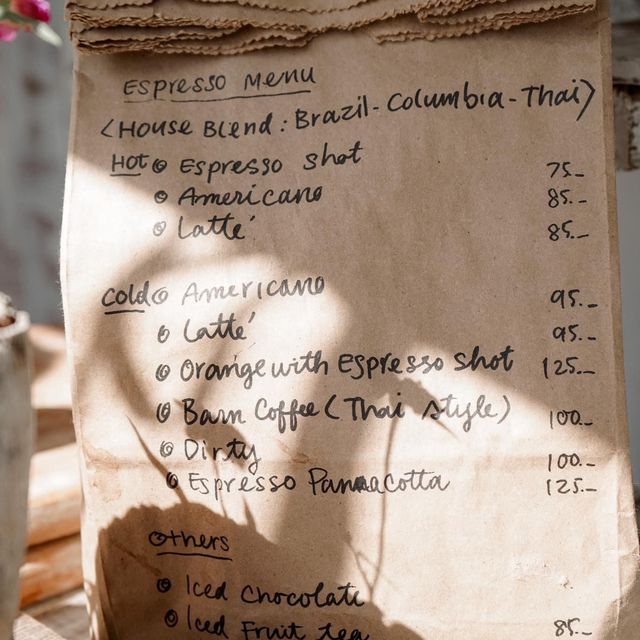 Espresso Menu
<House Blend: Brazil-Columbia-Thai>
Hot Espresso shot 75.-
Americano 85.-
Latte' 85.-
Cold Americano 95.-
Latte' 95.-
Orange with Espresso shot 125.-
Barn Coffee (Thai style) 100.-
Dirty 100.-
Espresso Pannacotta 125.-
Others
Iced Chocolate
Iced Fruit tea 85.-